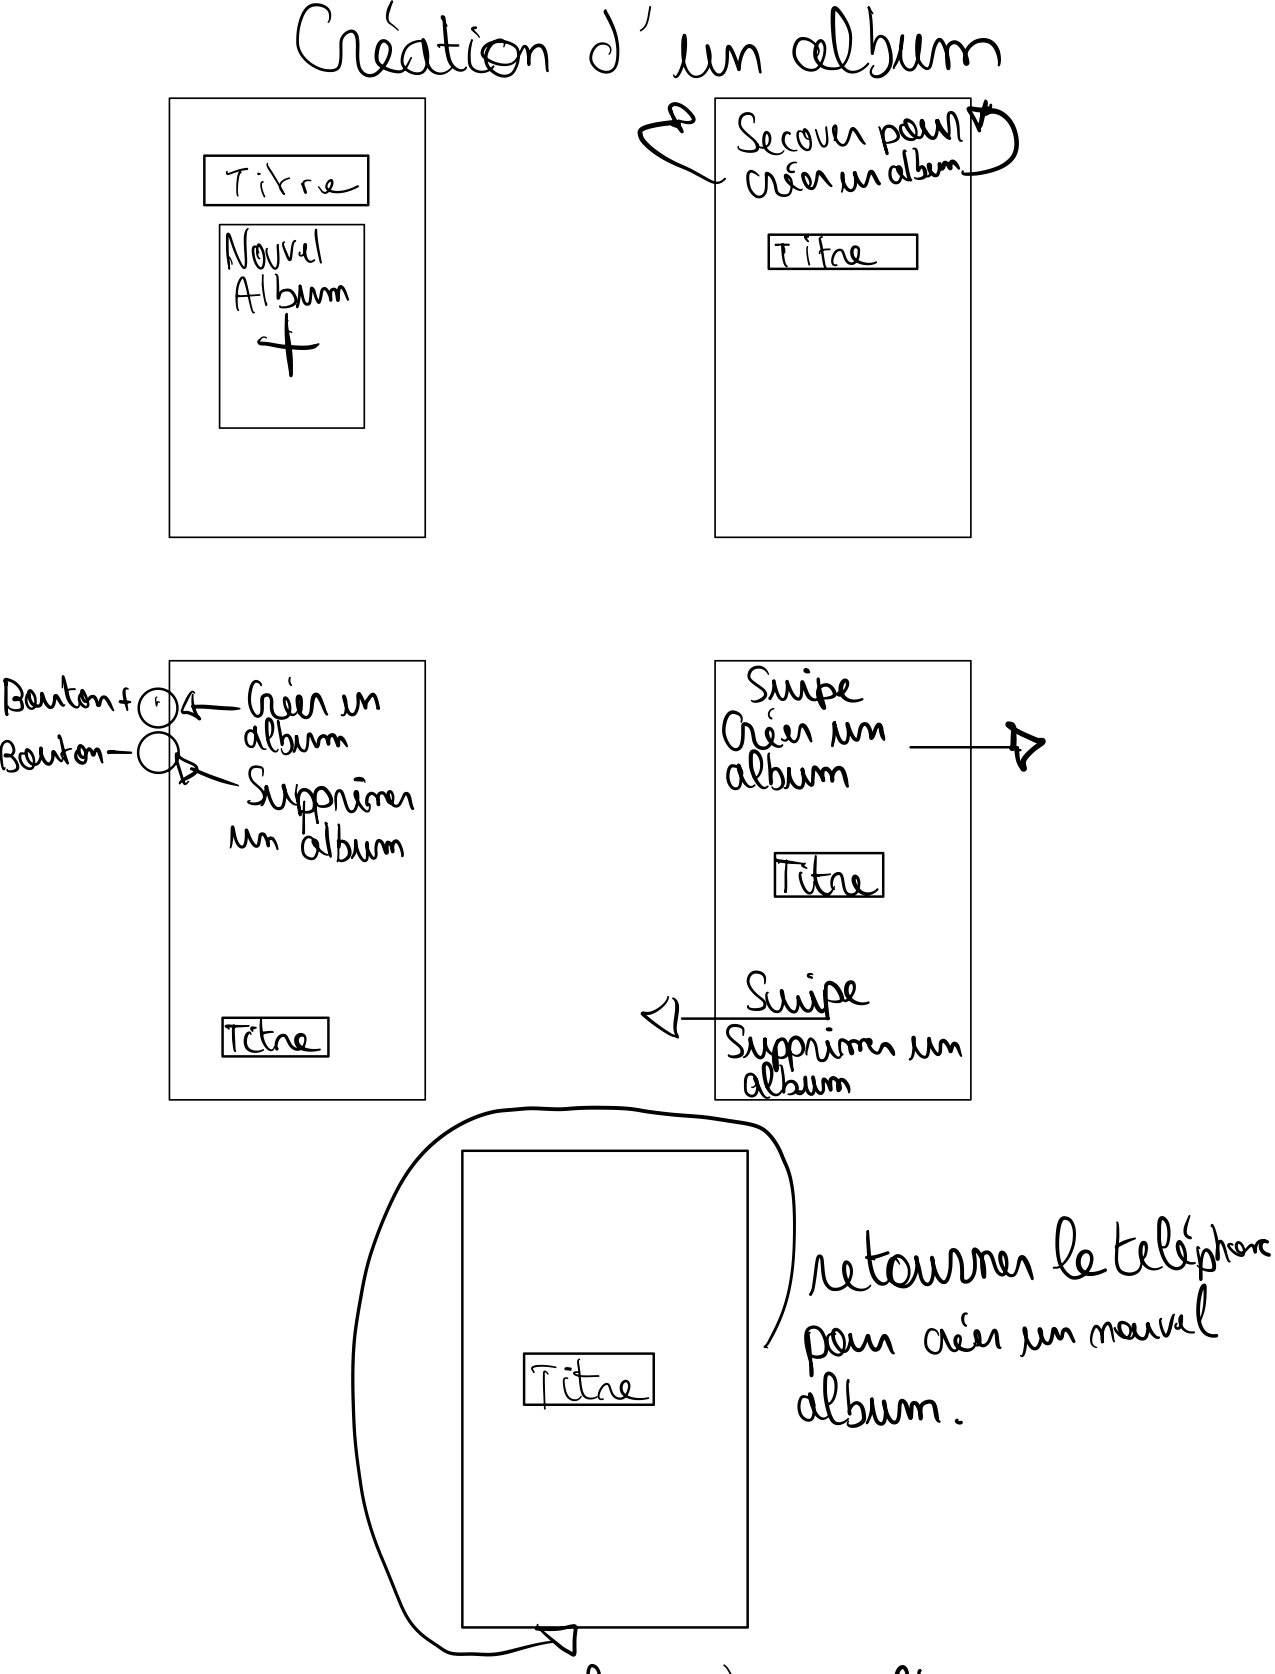 Création d'un album
Titre
Nouvel
Album
+
Secouer pour
créer un album
Titre
Bouton +
+
Créer un
album
Bouton -
Supprimer
un album
Titre
Swipe
Créer un
album
Titre
Swipe
Supprimer un
album
Titre
retourner le téléphone
pour créer un nouvel
album.